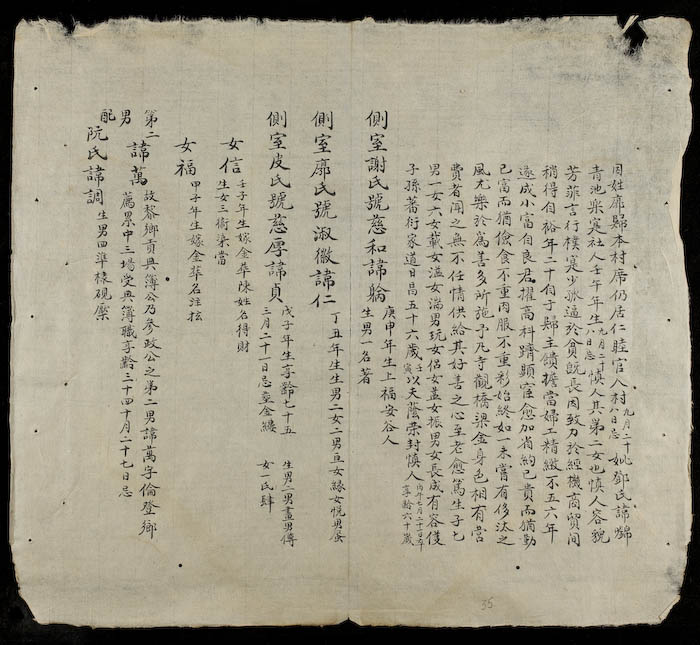 因姓廓歸本村席仍居仁睦官人村九月二十八日忌 妣鄧氏諱
青池樂寔社人壬午年生九月二十八日忌慎人其第二女也慎人容貌
芳菲言行樸寔少孤適於貧既長因致力於經機商貿間
稍得自裕年二十旬于歸主饋擔當婦工精緻不五六年
遂成小富自良君擢高科躋顯宦愈加省約已貴而猶勤
已富而猶儉食不重肉服不重彩始終如一未嘗有侈汰之
風尤樂於為善多所施予凡寺觀橋梁金身色相有營
費者聞之無不任情供給其好善之心至老愈篤生子七
男一女六女蕆女滋女湍男玩女侶女孟女振男女長成有容後
子孫蕃衍家道日昌五十六歲寅以夫蔭榮封慎人享齡六十歲
側室謝氏號慈和諱 庚申年生上福安谷人
生男一名著
側室廓氏號淑徽諱仁 丁丑年生生男二女二男亘女緣女悅男蛋
側室皮氏號慈厚諱貞 戊子年生享齡七十五 生男二男畫男傳
三月二十一日忌臺金縷 女一氏肆
女信 壬子年生嫁金葬陳姓名得財
生女三衙柒當
女福 甲子年生嫁金葬名注拡
第二男 諱萬 故黎鄉貢典簿公乃參政公之第二男諱萬字倫登鄉
薦累中三場受典簿職享齡三十四十月二十七日忌
配 阮氏諱調 生男四準榱硯
35